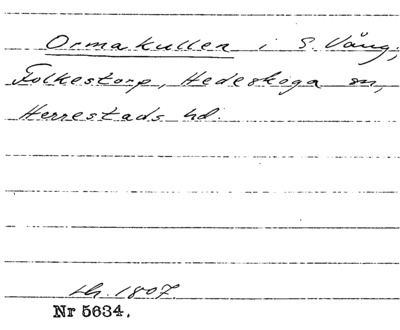 Ormakullen i S. Vång,
Folkestorp, Hedeskoga sn,
Herrestads hd.
lh. 1807.
Nr 5634.